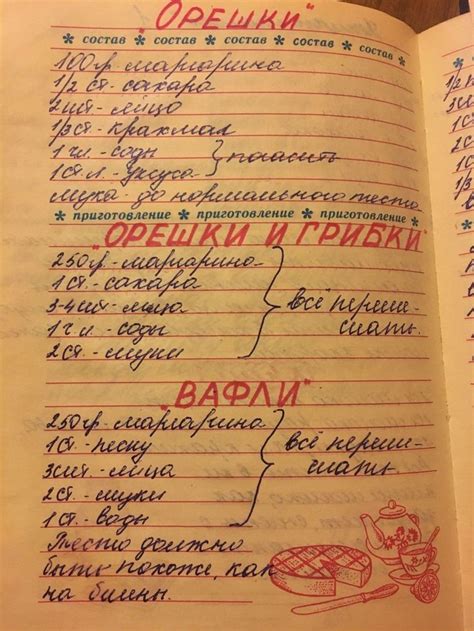 "ОРЕШКИ"
* состав * состав * состав * состав * состав *
100гр. маргарина
1/2 ст. сахара
2шт.- яйцо
1/3 ст. крахмал
1 ч.л. - соды } погасить
1 ст. л. - уксуса
Мука - до нормального теста
* приготовление * приготовление * приготовление *
"ОРЕШКИ И ГРИБКИ"
250гр. - маргарина
1 ст. - сахара
3-4шт. - яйца } всё переме-
1 ч. л. - соды шать.
2 ст. - муки
"ВАФЛИ"
250гр. - маргарина
1 ст. - песку
3шт. - яйца } всё переме-
2 ст. - муки шать.
1 ст. - воды
Тесто должно
быть похоже, как
на блины.